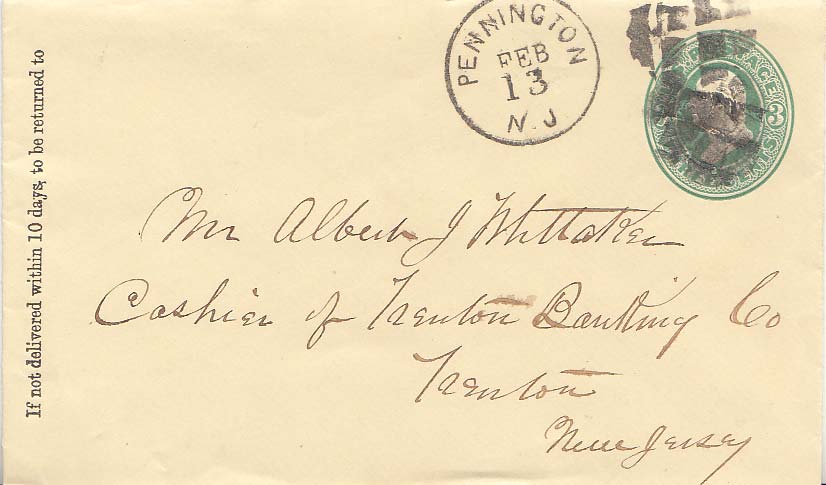 If not delivered within 10 days, to be returned to
PENNINGTON
FEB
13
N.J
POSTAGE
3
Mr Albert J Whittaker
Cashier of Trenton Banking Co
Trenton
New Jersey